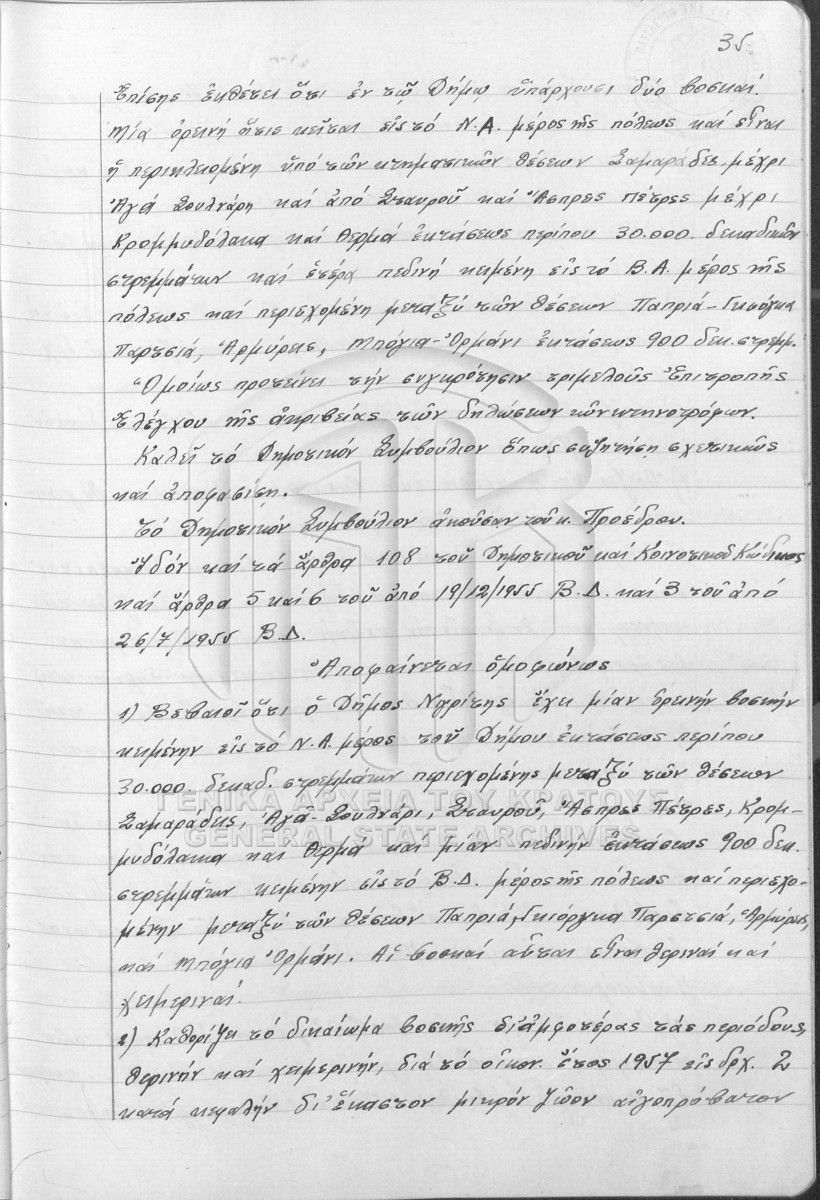 35
Ἐπίσης ἐκθέτει ὅτι ἐν τῷ Δήμῳ ὑπάρχουσι δύο βοσκαί.
Μία ὀρεινή ἥτις κεῖται εἰς τό Ν.Α. μέρος τῆς πόλεως καί εἶναι
ἡ περικλεισμένη ὑπό τῶν κτηματικῶν θέσεων Σαμαράδες μέχρι
Ἀγᾶ Σουλνάρη καί ἀπό Σταυροῦ καί Ἄσπρες Πέτρες μέχρι
Κρομμυδόλακα καί Θερμά ἐκτάσεως περίπου 30.000. δεκαδικῶν
στρεμμάτων καί ἑτέρα πεδινή κειμένη εἰς τό Β.Α. μέρος τῆς
πόλεως καί περισχομένη μεταξύ τῶν θέσεων Παπριά-
Παρτσιά, Ἀρμύρεις, Μπόγια-Ὀρμάνι ἐκτάσεως 900 δεκ. στρεμμ.
Ὁμοίως προτείνει τήν συγκρότησιν τριμελοῦς Ἐπιτροπῆς
Ἐλέγχου τῆς ἀκριβείας τῶν δηλώσεων τῶν κτηνοτρόφων.
Καλεῖ τό Δημοτικόν Συμβούλιον ὅπως συζητήση σχετικῶς
καί ἀποφασίση.
Τό Δημοτικόν Συμβούλιον ἀκοῦσαν τοῦ κ. Προέδρου.
Ἰδόν καί τά ἄρθρα 108 τοῦ Δημοτικοῦ καί Κοινοτικοῦ Κώδικος
καί ἄρθρα 5 καί 6 τοῦ ἀπό 19/12/1955 Β.Δ. καί 3 τοῦ ἀπό
26/7/1955 Β.Δ.
Ἀποφαίνεται ὁμοφώνως
1) Βεβαιοῖ ὅτι ὁ Δῆμος Νιγρίτης ἔχει μίαν ὀρεινήν βοσκήν
κειμένην εἰς τό Ν.Α. μέρος τοῦ Δήμου ἐκτάσεως περίπου
30.000. δεκαδ. στρεμμάτων περιεχομένης μεταξύ τῶν θέσεων
Σαμαράδες, Ἀγᾶ-Σουλνάρι, Σταυροῦ, Ἄσπρες Πέτρες, Κρομ-
μυδόλακα καί Θερμά καί μίαν πεδινήν ἐκτάσεως 900 δεκ.
στρεμμάτων κειμένην εἰς τό Β.Δ. μέρος τῆς πόλεως καί περισχο-
μένην μεταξύ τῶν θέσεων Παπριά, Γκιόργκα Παρτσιά, Ἀρμύρεις,
καί Μπόγια Ὀρμάνι. Αἱ βοσκαί αὗται εἶναι θεριναί καί
χειμεριναί.
2) Καθορίζει τό δικαίωμα βοσκῆς δι' ἀμφοτέρας τάς περιόδους,
θερινήν καί χειμερινήν, διά τό οἰκον. ἔτος 1957 εἰς δρχ. 2
κατά κεφαλήν δι' ἕκαστον μικρόν ζῶον αἰγοπρόβατον
ΓΕΝΙΚΑ ΑΡΧΕΙΑ ΤΟΥ ΚΡΑΤΟΥΣ
GENERAL STATE ARCHIVES